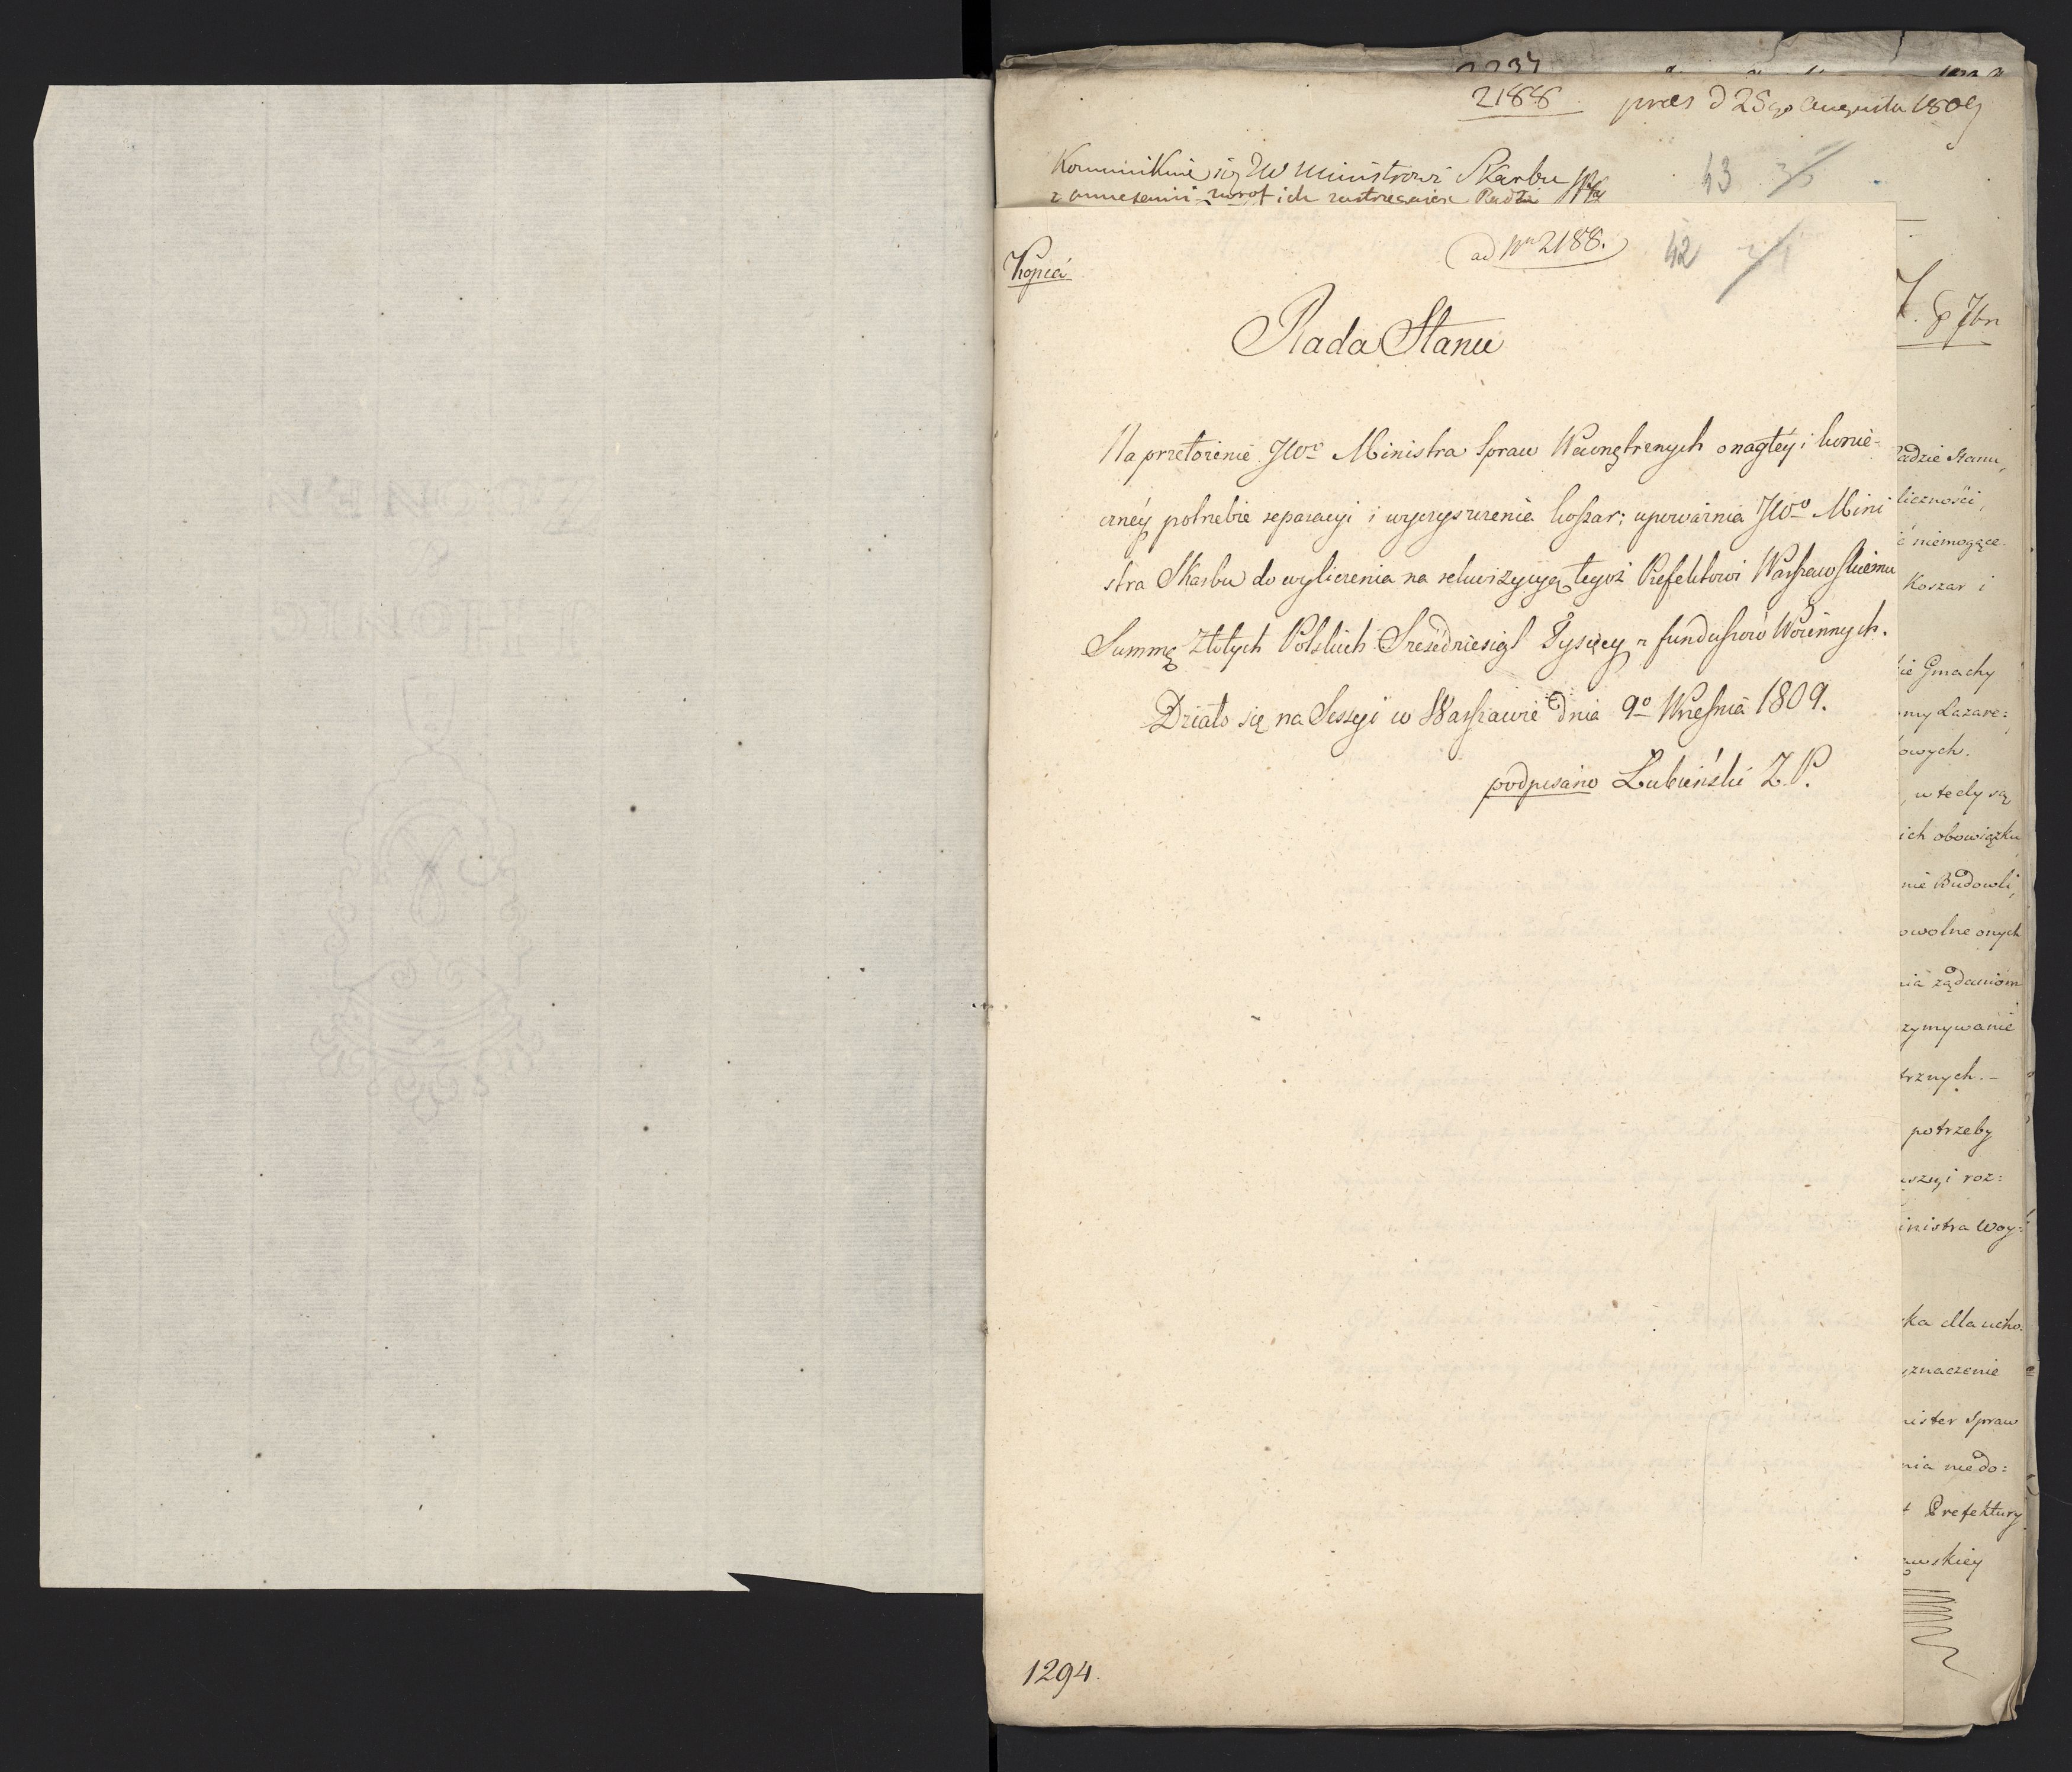 2188 praes d 25go Augusta 1809
Ministrowi Skarbu
43
Kopia
ad Nrm 2188.
42
Rada Stanu
Na przełożenie JWo Ministra Spraw Wewnętrznych o nagłéy i konie-
cznéy potrzebie reparacyi i wyczyszczenia koszar; upoważnia JWo Mini
stra Skarbu do wyliczenia na rekwizycyą tegoż Prefektowi Warszawskiemu
Summę Złotych Polskich Sześćdziesiąt Tysięcy z funduszów Woiennych.
Działo się na Sessyi w Warszawie dnia 9o Września 1809.
podpisano Łubieński Z. P.
1294.
adzie Stanu,
liczności,
niemogące
Koszar i
ie Gmachy
my Lazare:
owych.
, wtedy są
ich obowiązku
nie Budowli,
owolne onych
nia żądaniom
zymywanie
trznych.-
potrzeby
i roz:
inistra Woy:
ka dla ucho:
yznaczenie
nister Spraw
nia niedo:
t Prefektury
awskiey